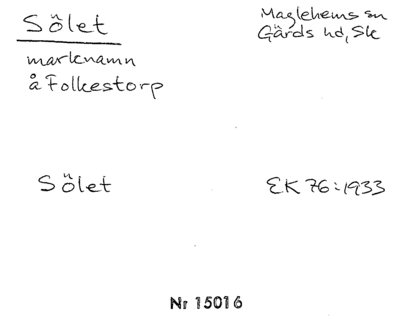 Sölet
Maglehems sn
Gärds hd, Sk
marknamn
å Folkestorp
Sölet
EK 76:1933
Nr 15016